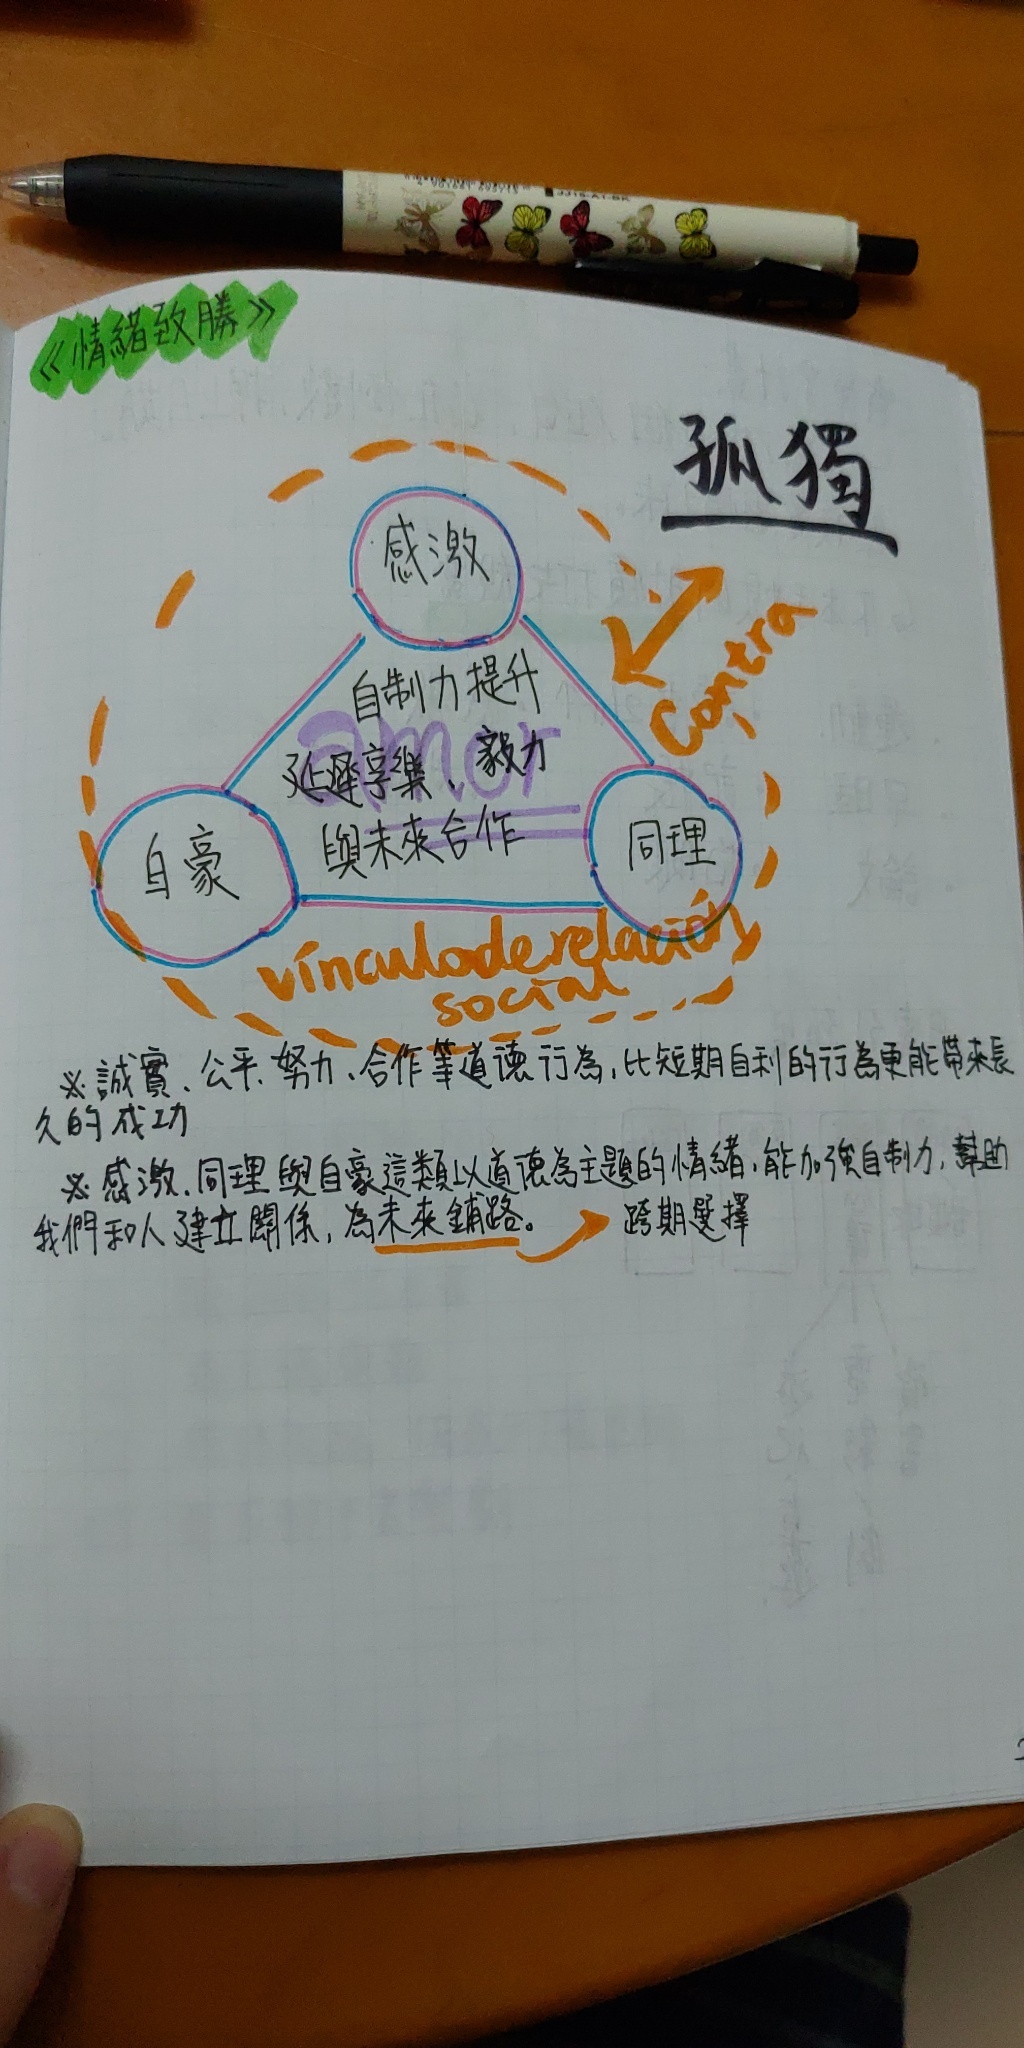 《情緒致勝》
孤獨
感激
contra
自制力提升
amor
延遲享樂、毅力
與未來合作
自豪
同理
vínculo de relación
social
※誠實、公平、努力、合作等道德行為，比短期自利的行為更能帶來長
久的成功
※感激、同理與自豪這類以道德為主題的情緒，能加強自制力，幫助
我們和人建立關係，為未來鋪路。 跨期選擇